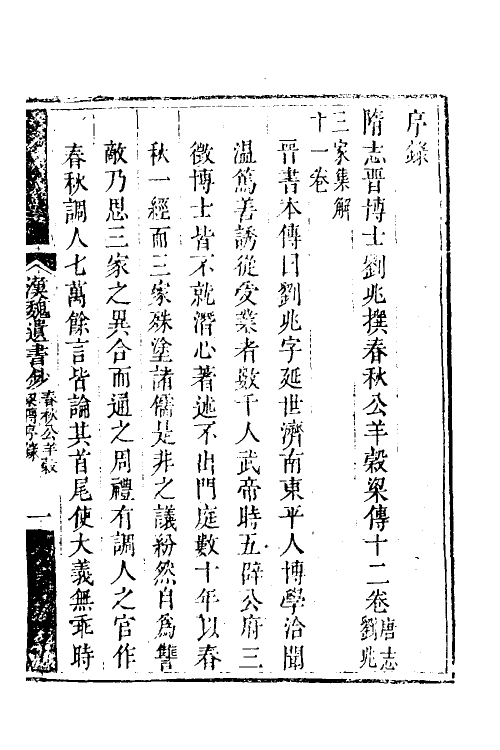 序錄
隋志晉博士劉兆撰春秋公羊穀梁傳十二卷唐志劉兆
三家集解
十一卷
晉書本傳曰劉兆字延世濟南東平人博學洽聞
温篤善誘從受業者數千人武帝時五辟公府三
徵博士皆不就潛心著述不出門庭數十年以春
秋一經而三家殊塗諸儒是非之議紛然自爲讐
敵乃思三家之異合而通之周禮有調人之官作
春秋調人七萬餘言皆論其首尾使大義無乖時
漢魏遺書鈔
春秋公羊穀
梁傳序錄
一